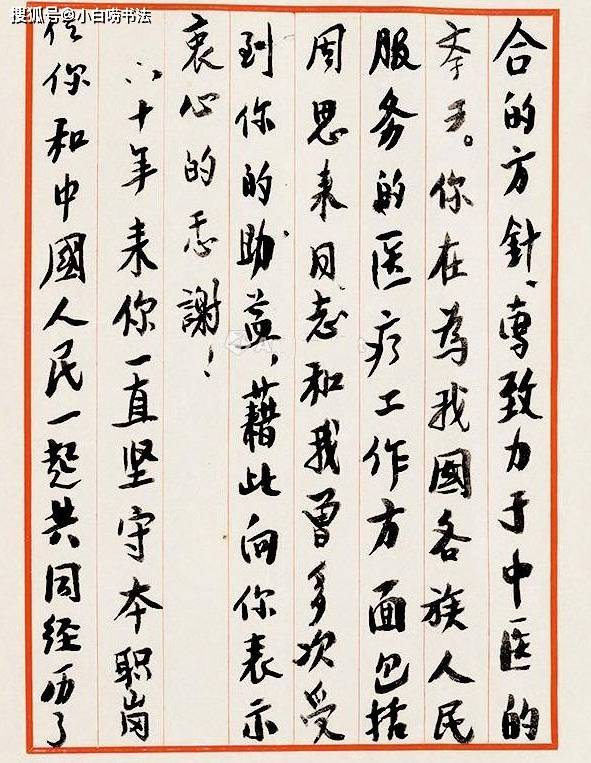 搜狐号@小白唠书法
合的方針、專致力于中医的
。你在為我國各族人民
服务的医疗工作方面包括
周恩来同志和我曾多次受
到你的助益，藉此向你表示
衷心的感謝！
六十年来你一直坚守本职岗
位你和中國人民一起共同经历了